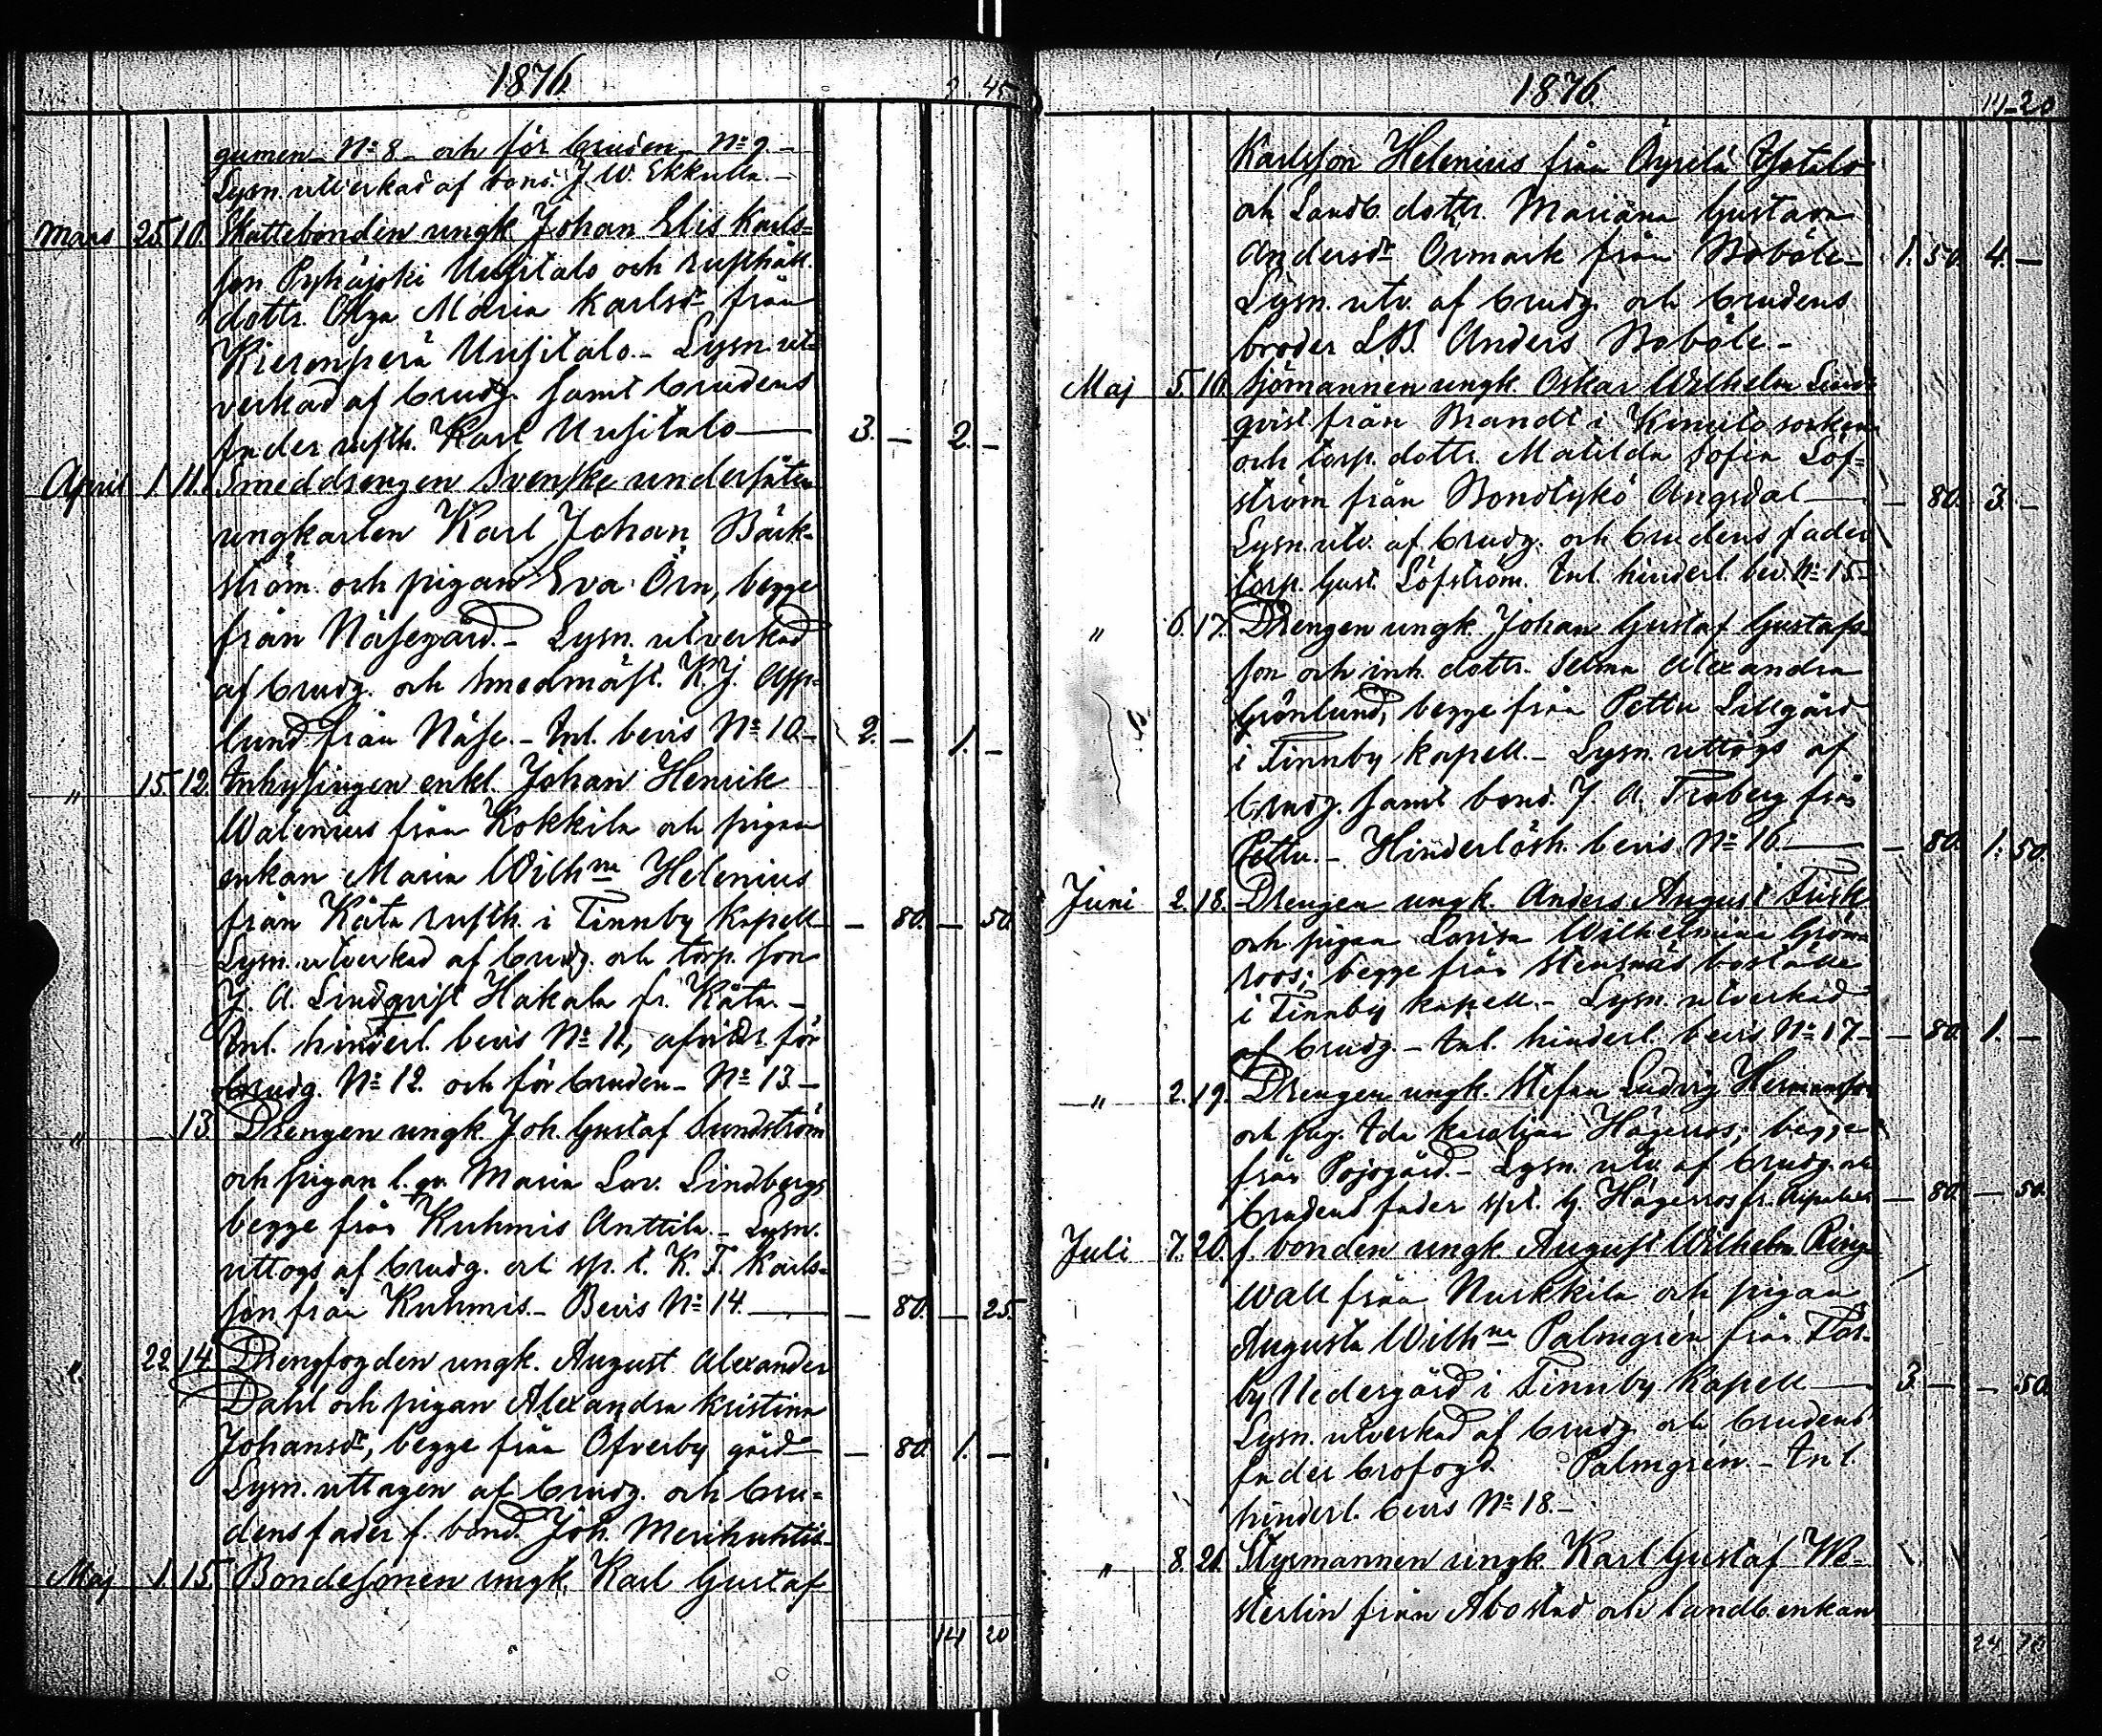 1876
9. 45
gumen Nº 8 och för bruden Nº 9 –
Lysn. utverkad af bond. J. W. Ekkulla. –
Mars 25. 10. Skattebonden ungk. Johan Elis Karls=
son Pyhäjoki Uusitalo och rusthåll.
dottr. Olga Maria Karlsdr från
Kieronperä Uusitalo. – Lysn. ut=
verkad af brudg. samt brudens
fader rusth. Karl Uusitalo — 3. – 2. –
April 1. 11. Smeddrengen Svenske undersåten
ungkarlen Karl Johan Bäck=
ström och pigan Eva Örn, begge
från Näsegård. – Lysn. utverkad
af brudg. och smedmäst. K. J. App=
lund från Näse. – Inl. bevis Nº 10. – 2. – 1. –
" 15. 12. Inhysingen enkl. Johan Henrik
Walenius från Kokkila och pigan
enkan Maria Wilhna Helenius
från Kåta rusth. i Finnby kapell – 80. – 50.
Lysn. utverkad af brudg. och torp. son
J. A. Lindqvist Hakala fr. Kåta. –
Inl. hinderl. bevis Nº 11, afvidr. för
brudg. Nº 12 och för bruden – Nº 13 –
" – 13. Drengen ungk. Joh. Gustaf Sundström
och pigan l. qv. Maria Lov. Lindberg,
begge från Kuhmis Anttila. – Lysn.
uttogs af brudg. och sp. t. K. F. Karls=
son från Kuhmis. – Bevis Nº 14. — – 80. – 25.
" 22. 14. Drengfogden ungk. August Alexander
Dahl och pigan Alexandra Kristina
Johansdr, begge från Ofverby gård – 80. 1. –
Lysn. uttagen af brudg. och bru=
dens fader f. bond. Joh. Merihuhtis –
Maj 1. 15. Bondesonen ungk. Karl Gustaf
14 20
1876.
14–20
Karlsson Helenius från Öyrelä Ylstalo
och Landb. dottr. Mariana Gustava
Andersdr Örmark från Boböle – 1. 50. 4. –
Lysn. utv. af brudg. och brudens
broder LB. Anders Boböle –
Maj 5. 16. Sjömannen ungk. Oskar Wilhelm Lind=
qvist från Brandt i Kimito socken
och torp. dottr. Matilda Sofia Löf=
ström från Bondtykö Ängsdal — – 80. 3. –
Lysn. utv. af brudg. och brudens fader
torp. Gust. Löfström. Inl. hinderl. bev. Nº 15 –
" 6. 17. Drengen ungk. Johan Gustaf Gustafs=
son och inh. dottr. Selma Alexandra
Grönlund, begge från Pettu Lillgård
i Finnby kapell. – Lysn. uttogs af
brudg. samt bond. J. A. Troberg från
Pettu. – Hinderlösh. bevis Nº 16 — – 80. 1. 50.
Juni 2. 18. Drengen ungk. Anders August Fisk
och pigan Lovisa Wilhelmina Grön=
roos, begge från Stensnäs boställe
i Finnby kapell. – Lysn. utverkad
af brudg. – Inl. hinderl. bevis Nº 17 – – 80. 1. –
" 2. 19. Drengen ungk. Stefan Ludvig Hermansson
och pig. Ida Karolina Hägerros, begge
från Pojogård. – Lysn. utv. af brudg. och
brudens fader spt. G. Hägerros fr. – 80. – 50.
Juli 7. 20. f. bonden ungk. August Wilhelm Ring=
wall från Nurkkila och pigan
Augusta Wilhna Palmgrén från Fal=
by Nedergård i Finnby Kapell — 3. – – 50.
Lysn. utverkad af brudg. och brudens
fader brofogd. Palmgrén – Inl.
hinderl. bevis Nº 18. –
" 8. 21. Styrmannen ungk. Karl Gustaf We=
sterlin från Åbo stad och landb. enkan
24 70